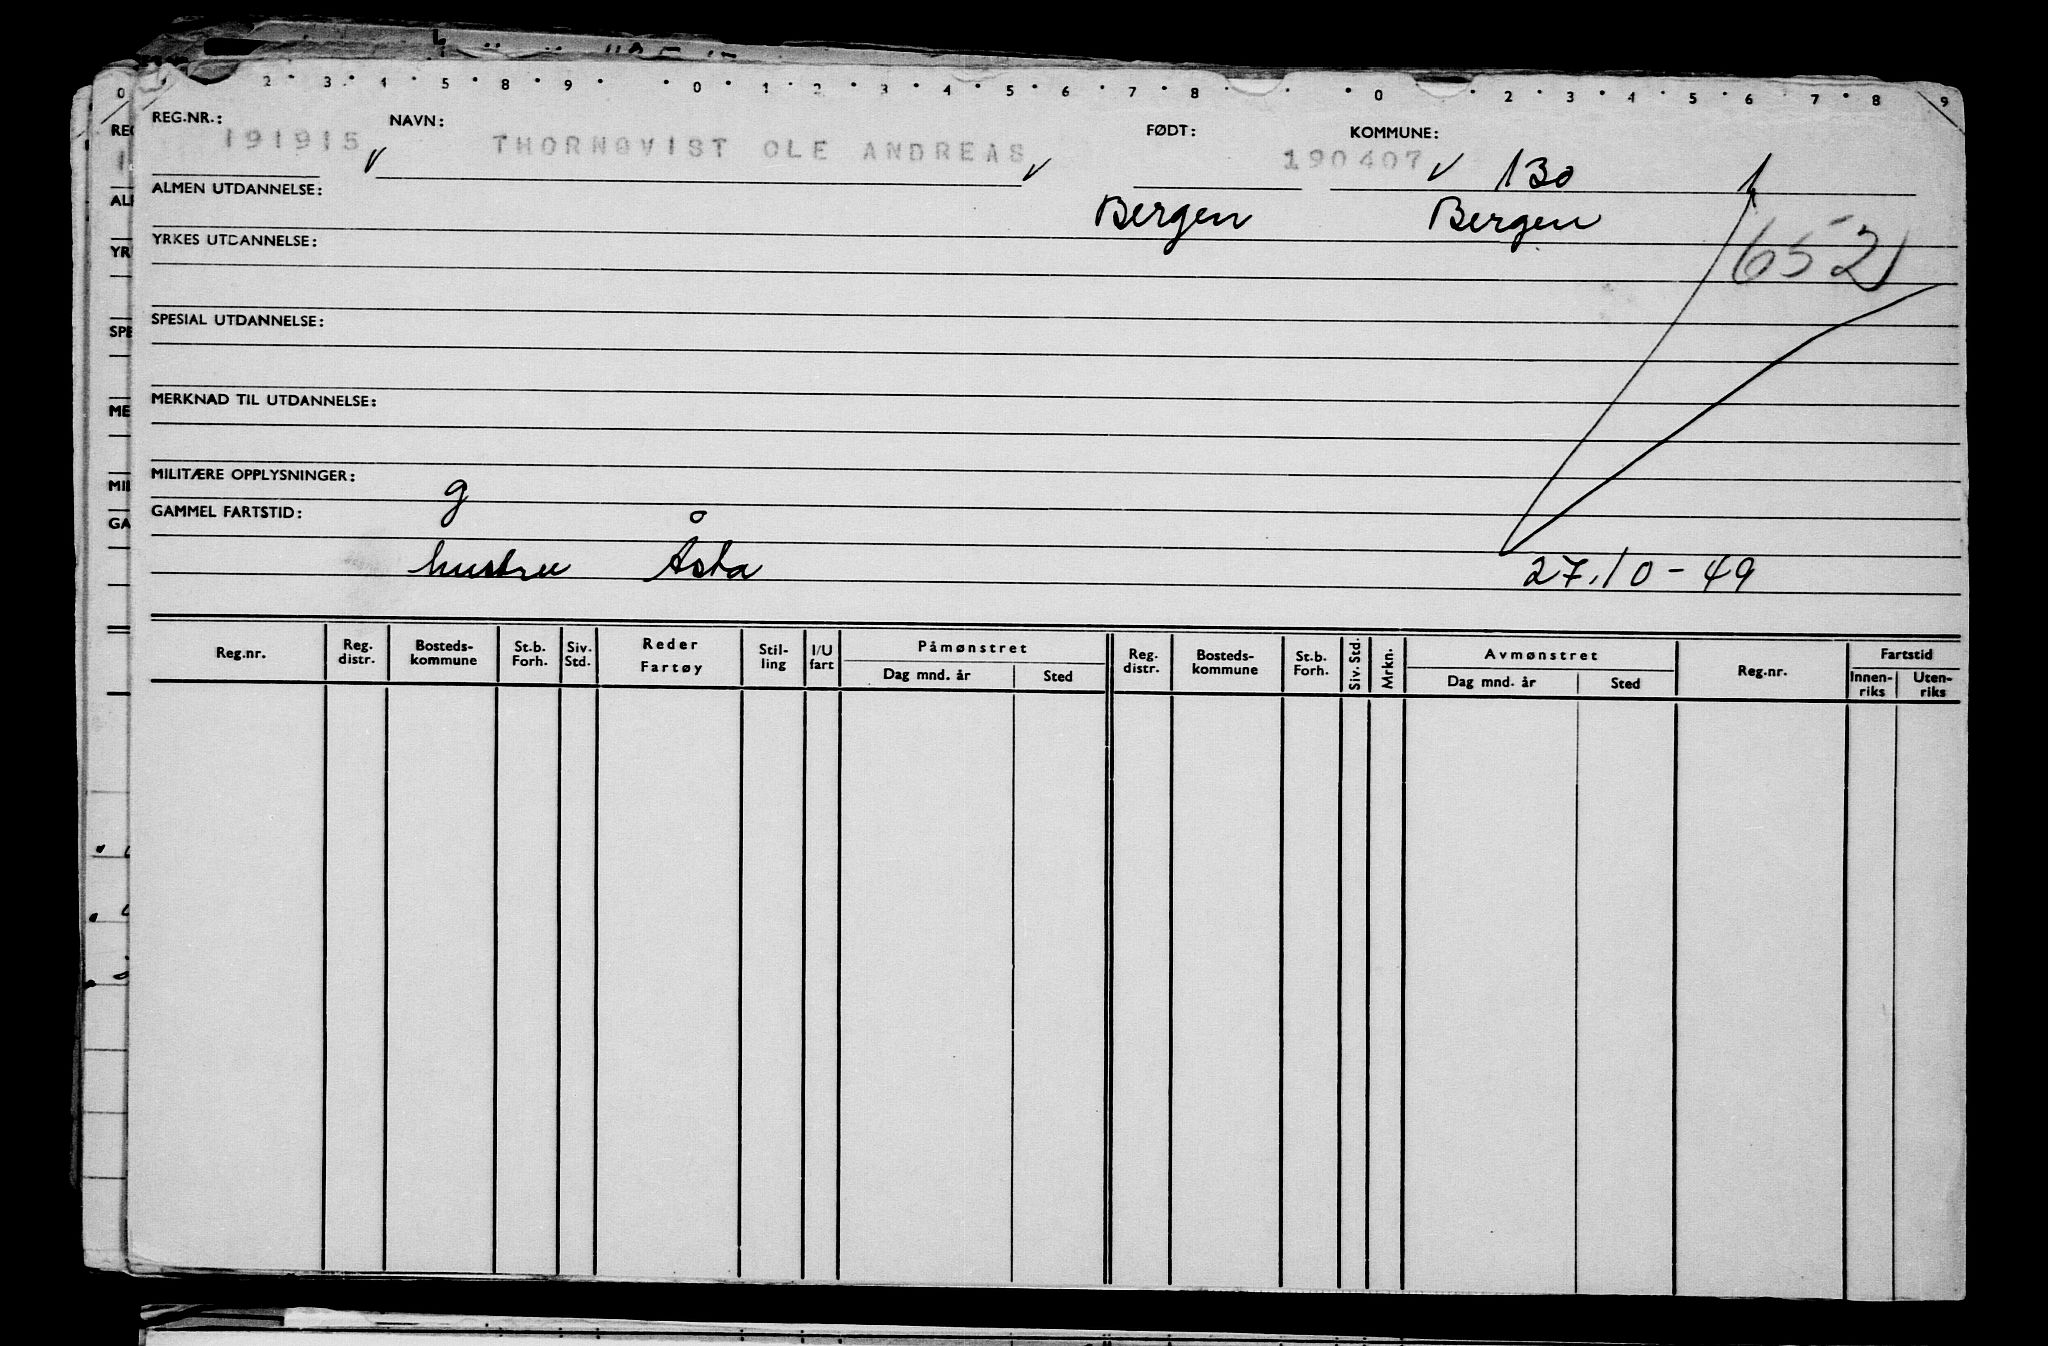 2 3 4 5 8 9 0 1 2 3 4 5 6 7 8 0 2 3 4 5 6 7 8 9
REG.NR.: 191915 NAVN: THORNQVIST OLE ANDREAS FØDT: 190407 KOMMUNE: 130
ALMEN UTDANNELSE: Bergen Bergen
YRKES UTDANNELSE: 652
SPESIAL UTDANNELSE:
MERKNAD TIL UTDANNELSE:
MILITÆRE OPPLYSNINGER: g
GAMMEL FARTSTID:
hustru Åsta 27.10-49
Reg.nr. Reg. distr. Bosteds-kommune St.b. Forh. Siv. Std. Reder Fartøy Stil-ling I/U fart Påmønstret Dag mnd. år Sted Reg. distr. Bosteds-kommune St.b. Forh. Siv. Std. Mrkn. Avmønstret Dag mnd. år Sted Reg.nr. Fartstid Innen-riks Uten-riks